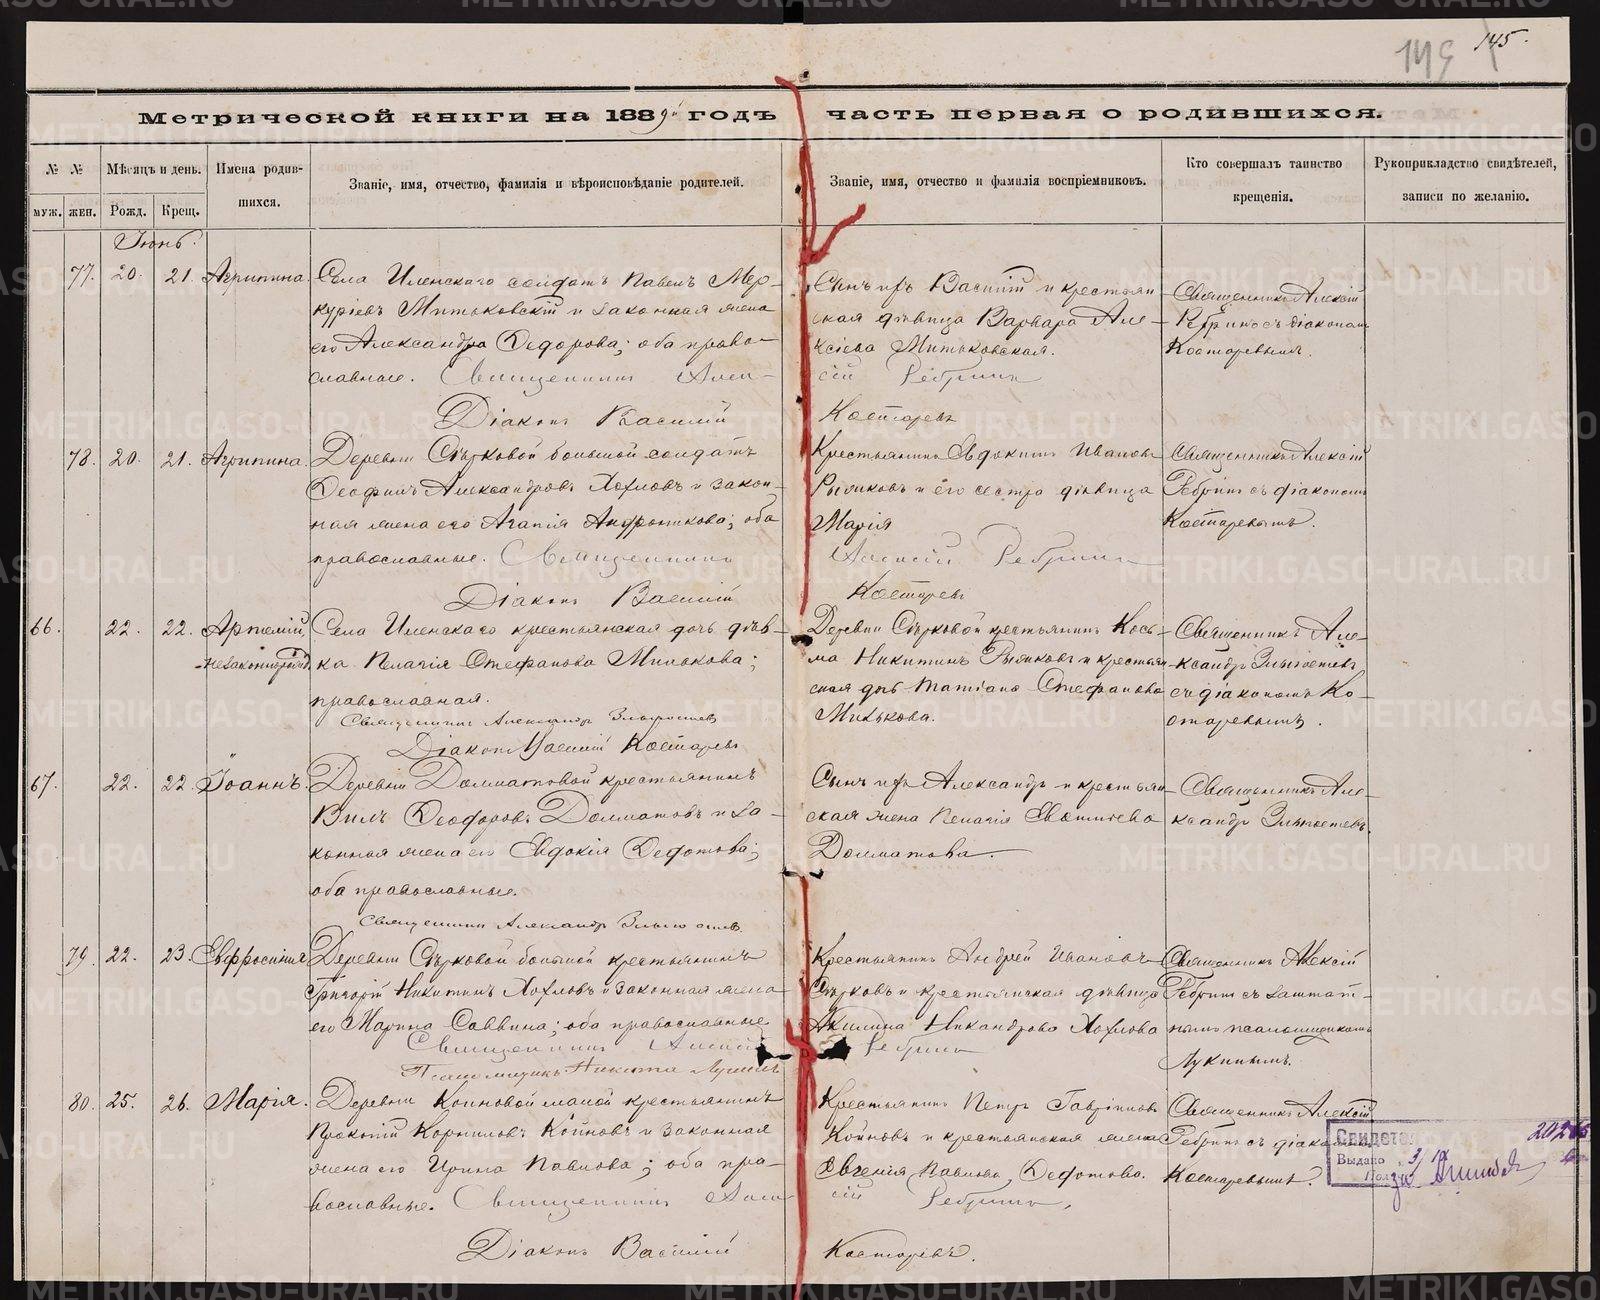 145.
Метрической книги на 1889й годъ часть первая о родившихся.
№ № Мѣсяцъ и день. Имена родив-
шихся.
муж. жен. Рожд. Крещ.
Званіе, имя, отчество, фамилія и вѣроисповѣданіе родителей.
Званіе, имя, отчество и фамилія воспріемниковъ.
Кто совершалъ таинство
крещенія.
Рукоприкладство свидѣтелей,
записи по желанію.
Іюнь.
77. 20. 21. Агрипина.
Села Иленскаго солдатъ Павелъ Мер-
куріевъ Митьковскій и законная жена
его Александра Ѳедорова; оба право-
славные. Священникъ Алек-
Діаконъ Василій
Сынъ ихъ Василій и крестьян
ская дѣвица Варвара Але-
ксіева Митьковская.
сій Ребринъ
Костаревъ
Священникъ Алексій
Ребринъ съ діакономъ
Костаревымъ.
78. 20. 21. Агрипина.
Деревни Сѣрковой большой солдатъ
Ѳеофилъ Александровъ Хохловъ и закон-
ная жена его Агапія Андроникова; оба
православные. Священникъ
Діаконъ Василій
Крестьянинъ Евдокимъ Ивановъ
и его сестра дѣвица
Марія
Алексій Ребринъ
Костаревъ
Священникъ Алексій
Ребринъ съ діакономъ
Костаревымъ.
66. 22. 22. Артемій,
незаконнорожд
Села Иленскаго крестьянская дочь дѣв-
ка Пелагія Стефанова Милькова;
православная.
Священникъ Александръ
Діаконъ Василій Костаревъ
Деревни Сѣрковой крестьянинъ Косъ-
ма Никитинъ и крестьян
ская дочь Татіана Стефанова
Милькова.
Священникъ Але-
ксандръ
съ діакономъ Ко-
старевымъ.
67. 22. 22. Іоаннъ.
Деревни Долматовой крестьянинъ
Вилъ Ѳеодоровъ Долматовъ и за-
конная жена его Евдокія Ѳедотова;
оба православные.
Священникъ Александръ
Сынъ ихъ Александръ и крестьян-
ская жена Пелагія
Долматова.
Священникъ Але-
ксандръ
79. 22. 23. Евфросинія
Деревни Сѣрковой большой крестьянинъ
Григорій Никитинъ Хохловъ и законная жена
его Марина Саввина; оба православные
Священникъ Алексій
Псаломщикъ Никита Лукинъ
Крестьянинъ Андрей Ивановъ
Сѣрковъ и крестьянская дѣвица
Акилина Никандрова Хохлова
Ребринъ
Священникъ Алексій
Ребринъ съ заштат-
нымъ псаломщикомъ
Лукинымъ.
80. 25. 26. Марія.
Деревни Коиновой малой крестьянинъ
Прокопій Корниловъ Коиновъ и законная
жена его Ирина Павлова; оба пра-
вославные. Священникъ Алек
Діаконъ Василій
Крестьянинъ Петръ Гавриловъ
Коиновъ и крестьянская жена
Евгенія Павлова Ѳедотова.
сій Ребринъ,
Костаревъ.
Священникъ Алексій
Ребринъ съ діакономъ
Костаревымъ.
Выдано
METRIKI.GASO-URAL.RU